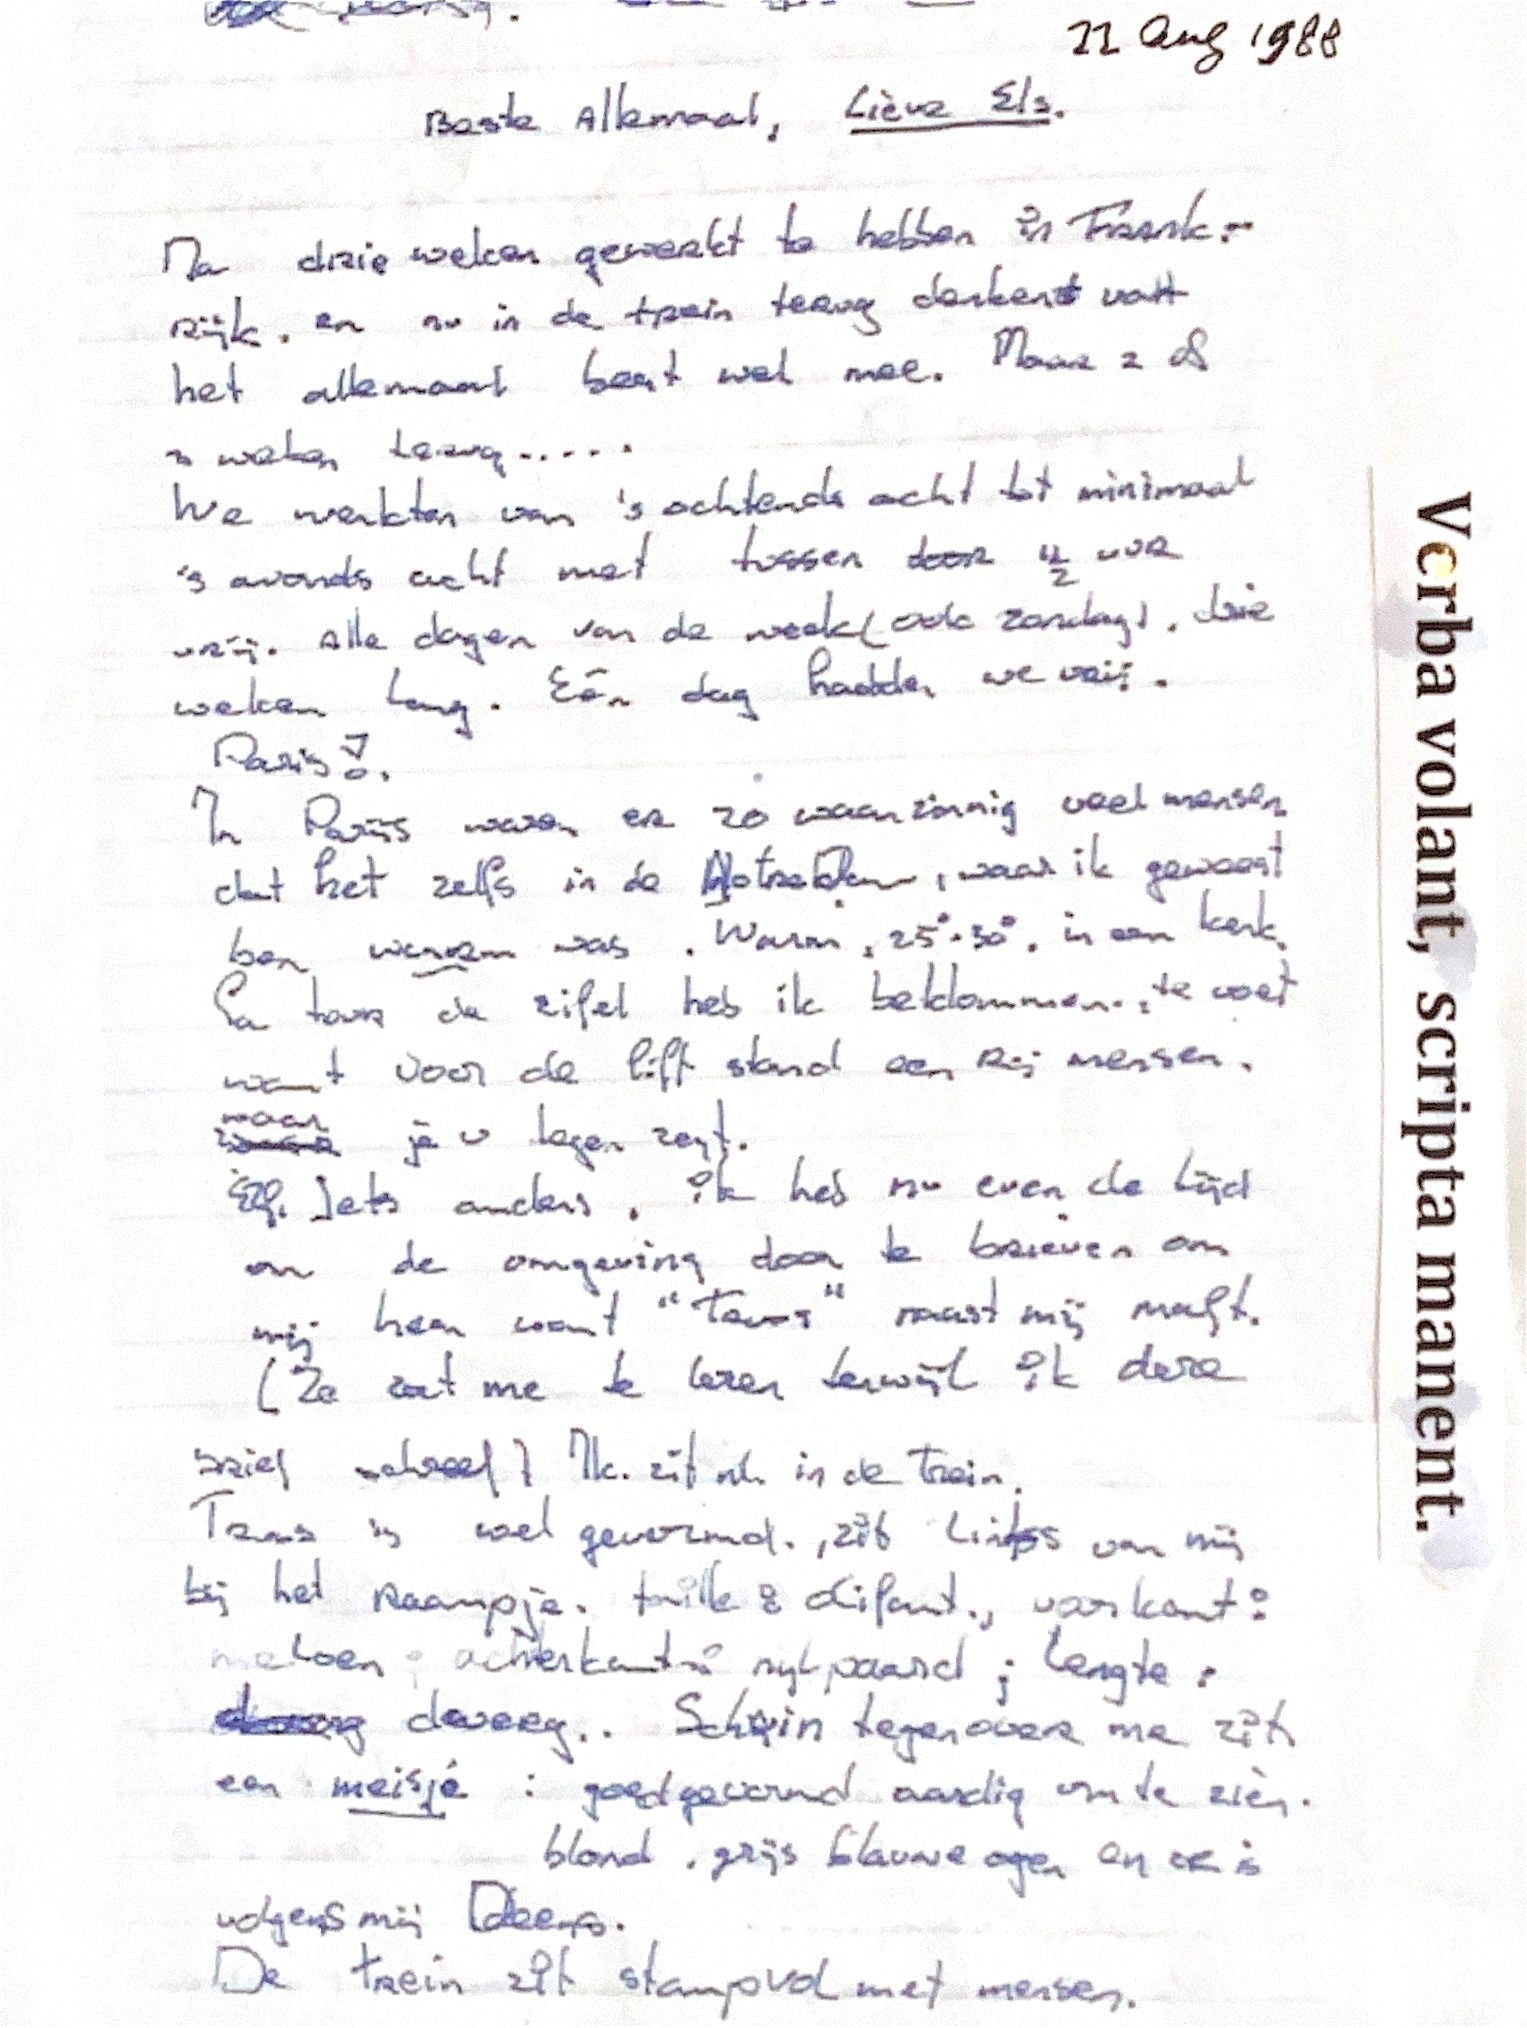 22 Aug 1988
Beste Allemaal, Liève Els.
Na drie weken gewerkt te hebben in Frank-
rijk. en nu in de trein terug denkend valt
het allemaal best wel mee. Maar 2 of
3 weken terug.....
We werkten van 's ochtends acht tot minimaal
's avonds acht met tussen door 1/2 uur
vrij. Alle dagen van de week (ook zondag). drie
weken lang. Eén dag hadden we vrij.
Paris!
In Parijs waren er zo waanzinnig veel mensen
dat het zelfs in de Notre Dame, waar ik geweest
ben warm was. Warm, 25°-30°, in een kerk.
La tour de eifel heb ik beklommen., te voet
want voor de lift stond een rij mensen.
maar je u tegen zegt.
Iets anders. ik heb nu even de tijd
om de omgeving door te brieven om
mij heen want " " naast mij maft.
(Ze zat me te lezen terwijl ik deze
brief schreef) Ik. zit in de Trein.
is wel gevormd., zit links van mij
bij het raampje. taille: olifant., voorkant:
meloen; achterkant: nijlpaard; lengte:
dwerg.. Schuin tegenover me zit
een meisje : goedgevormd aardig om te zien.
blond, grijs blauwe ogen en ze is
volgens mij Deens.
De trein zit stampvol met mensen.
Verba volant, scripta manent.